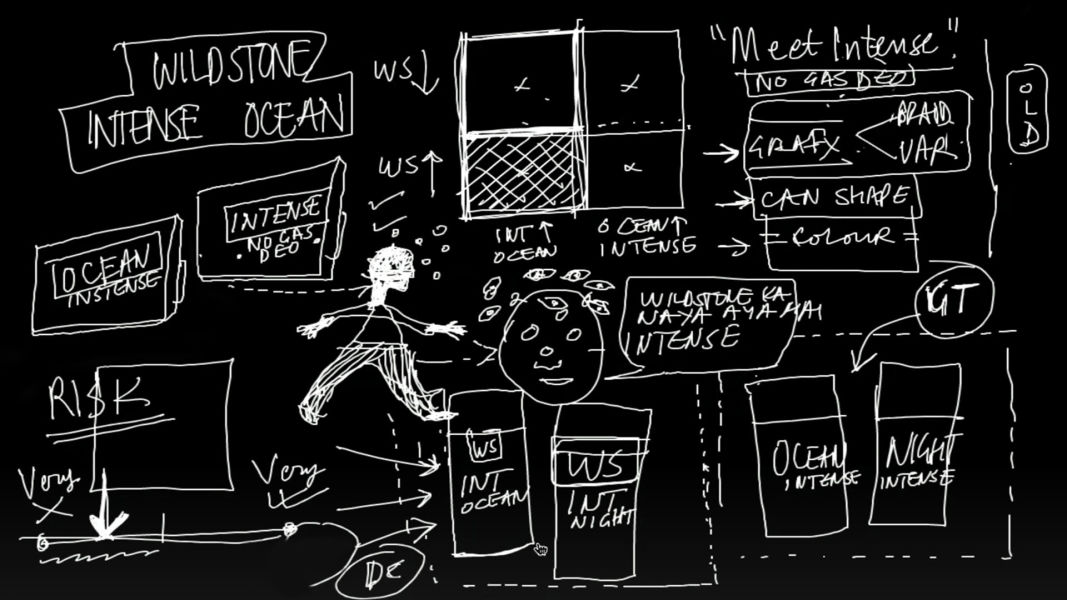 WILDSTONE
INTENSE OCEAN
WS↓
WS↑
INT↑
OCEAN
OCEAN↑
INTENSE
"Meet Intense"
NO GAS DEO
GRAFX
BRAND
VAR.
CAN SHAPE
= COLOUR =
OLD
OCEAN
INSTENSE
INTENSE
NO GAS
DEO
WILDSTONE KA
NAYA AYA HAI
INTENSE
GT
RISK
Very
Very
WS
INT
OCEAN
WS
INT
NIGHT
OCEAN
INTENSE
NIGHT
INTENSE